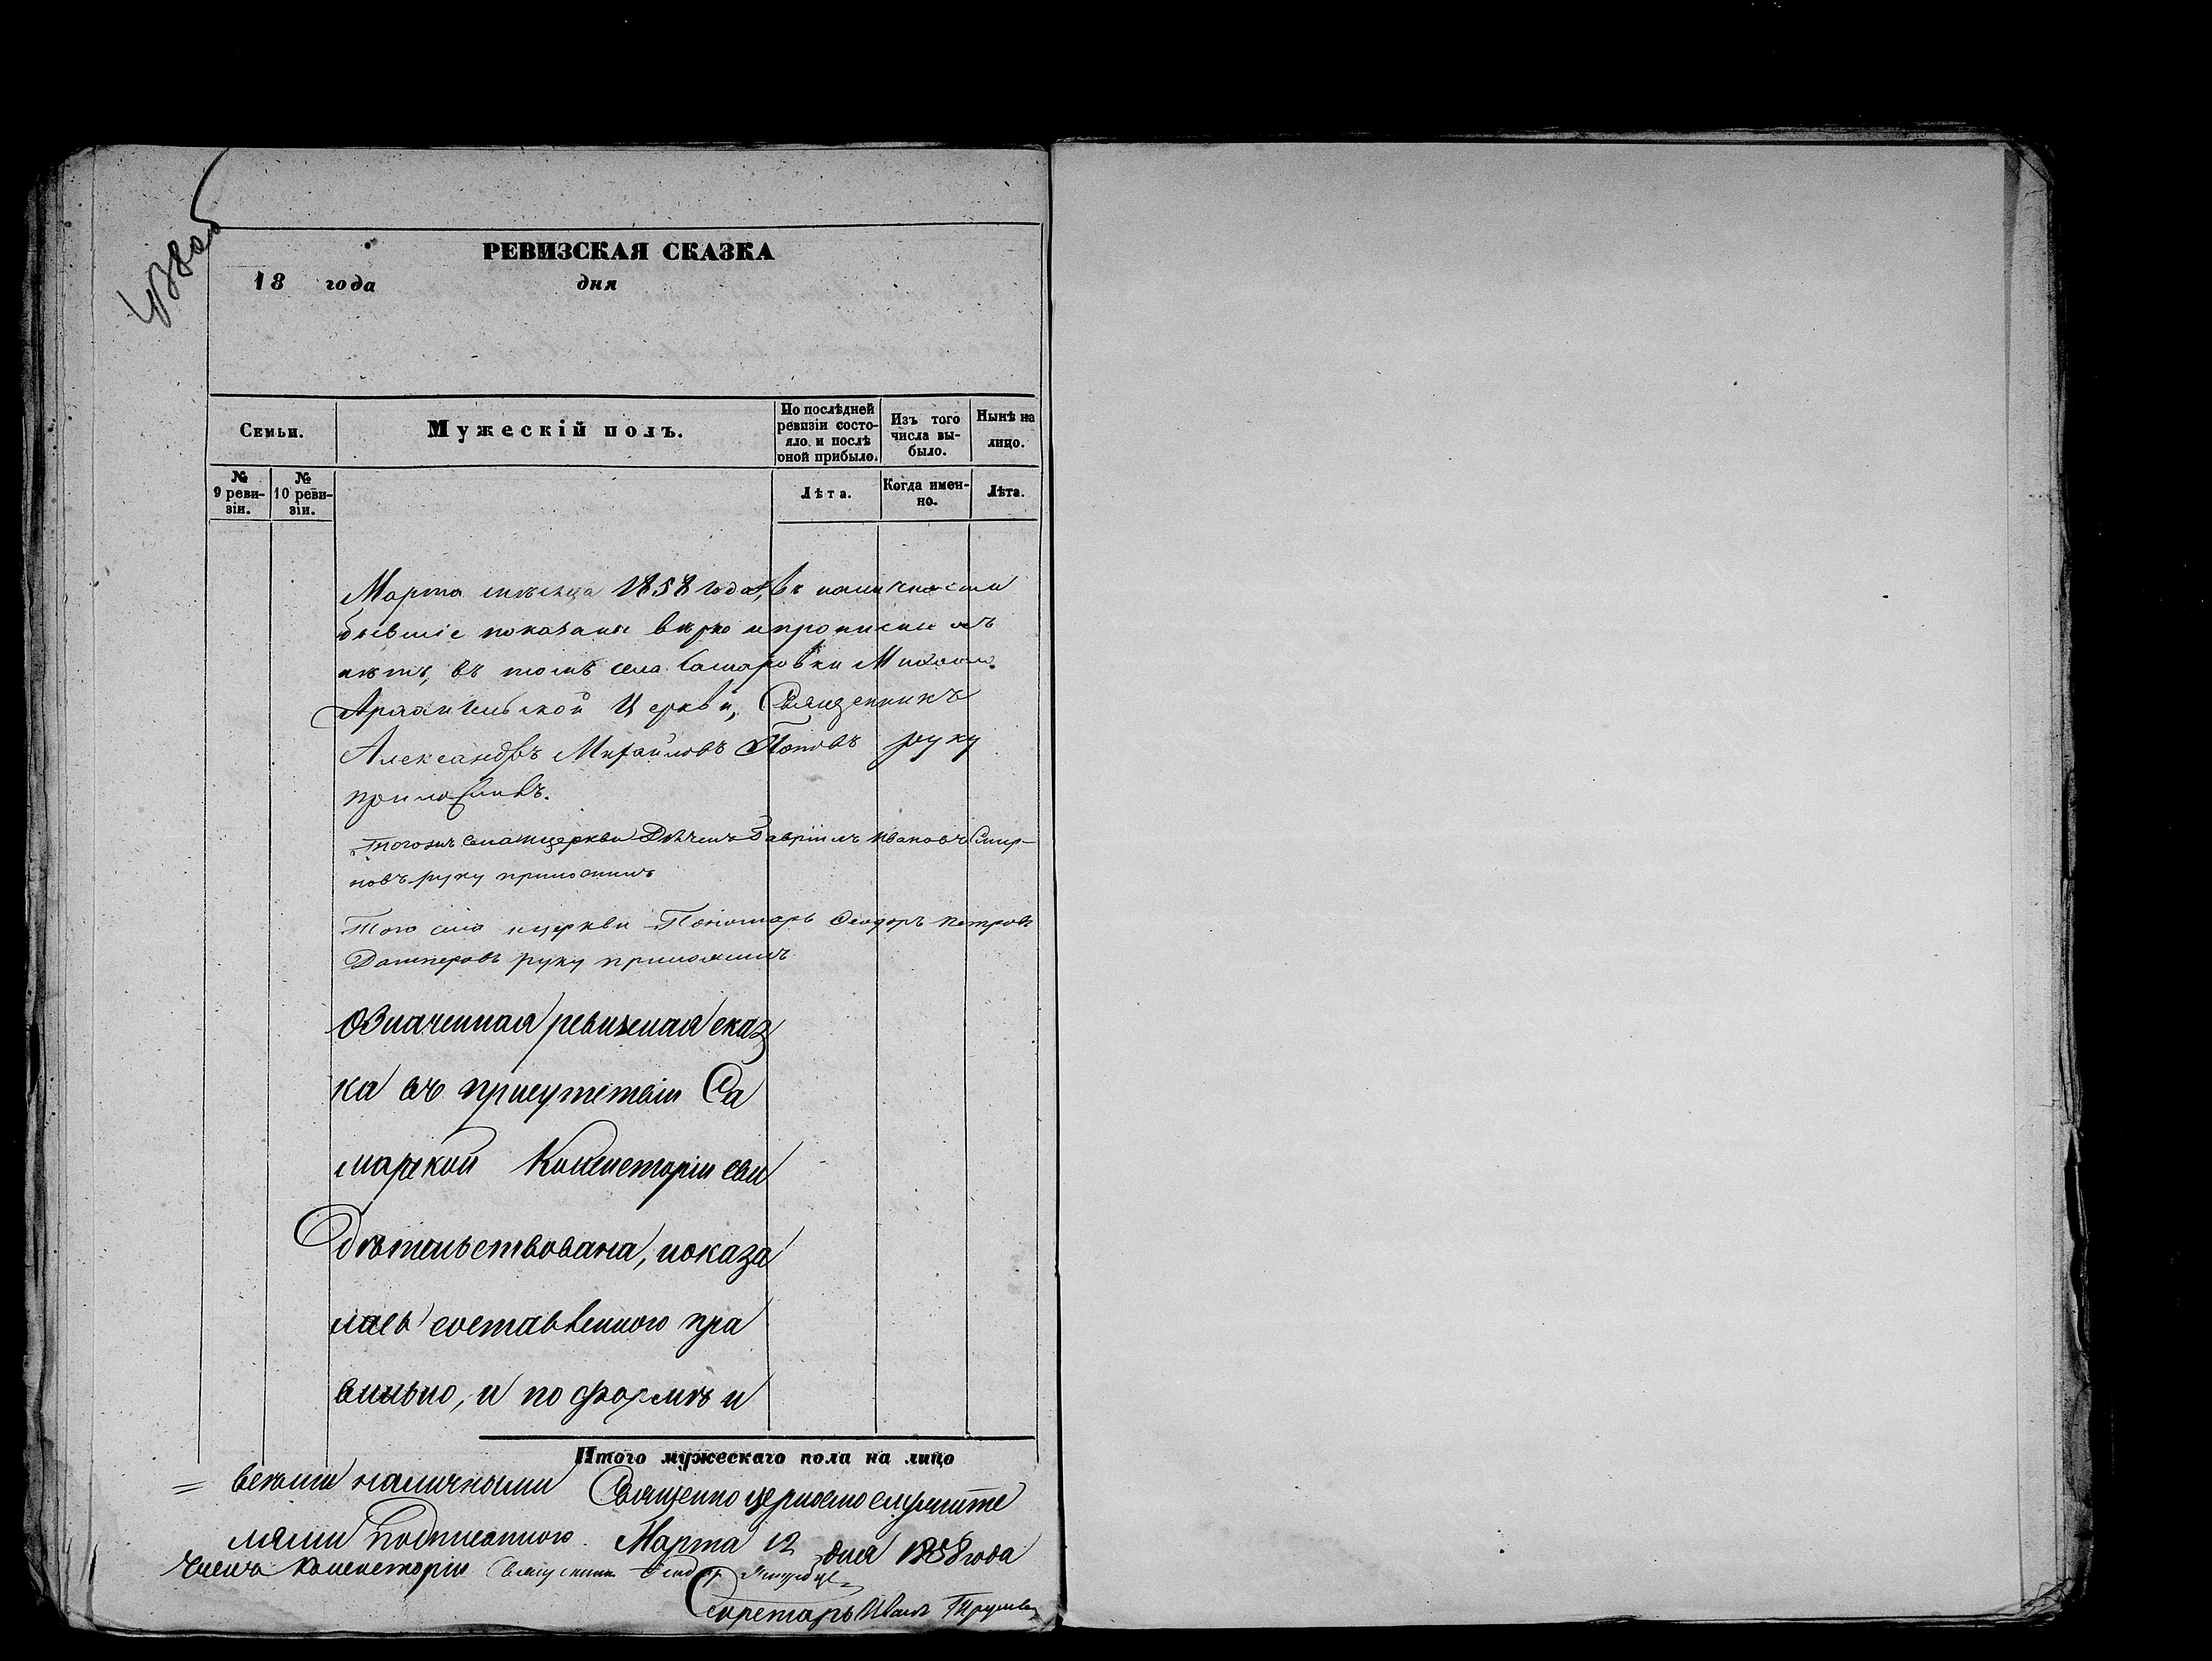 РЕВИЗСКАЯ СКАЗКА
18 года дня
Семьи.
Мужескій полъ.
По послѣдней ревизіи состояло и послѣ оной прибыло.
Изъ того числа выбыло.
Ныпѣ на лицо.
№ 9 ревизіи.
№ 10 ревизіи.
Лѣта.
Когда именно.
Лѣта.
Марта мѣсяца 1858 года, въ наличности
бывшіе показаны вѣрно и прописныхъ
нѣтъ, въ томъ села Михаило
Архангельской Церкви, Священникъ
Александръ Михайловъ Поповъ руку
приложилъ.
Тогожъ села и церкви Дьячекъ Гавріилъ Ивановъ Смир-
новъ руку приложилъ
Того села и церкви Пономарь Ѳеодоръ Петровъ
руку приложилъ
Означенная ревизская сказ
ка въ присутствіи Са
марской Консисторіи сви
дѣтельствована, показа
лась составленною пра
вильно, и по формѣ и
Итого мужескаго пола на лицо
= всѣми наличными Священно церковно служите
лями подписанною. Марта 12 дня 1858 года
Членъ Консисторіи Священникъ
Секретарь Иванъ